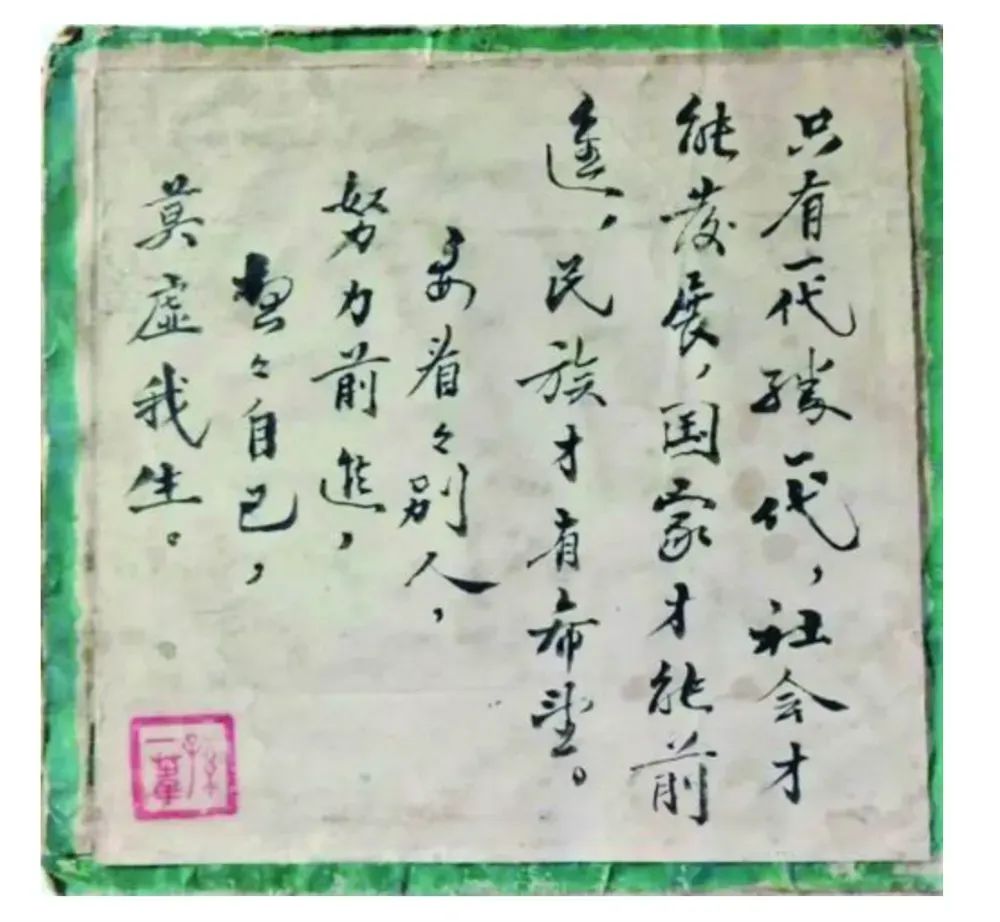 只有一代勝一代，社会才
能發展，国家才能前
進，民族才有希望。
要看々别人，
努力前進，
想々自己，
莫虚我生。